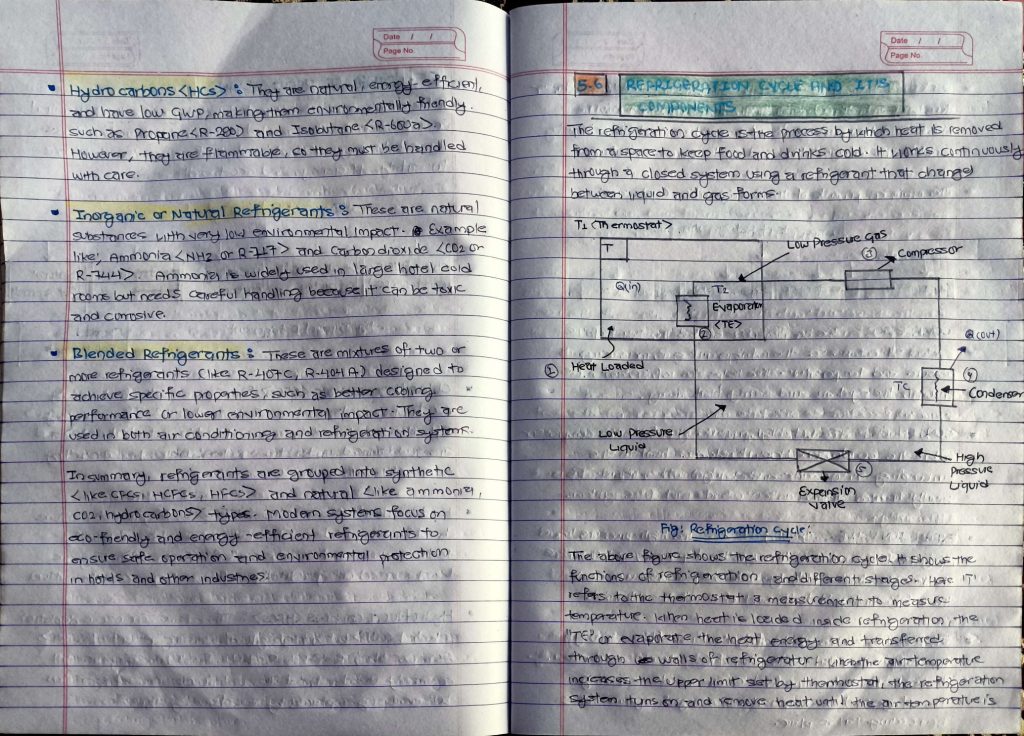 Date / /
Page No.
• Hydrocarbons <HCs> : They are natural, energy-efficient,
and have low GWP, making them environmentally friendly.
such as Propane <R-290> and Isobutane <R-600a>.
However, they are flammable, so they must be handled
with care.
• Inorganic or Natural Refrigerants : These are natural
substances with very low environmental impact. Example
like, Ammonia <NH2 or R-717> and Carbon dioxide <CO2 or
R-744>. Ammonia is widely used in large hotel cold
rooms but needs careful handling because it can be toxic
and corrosive.
• Blended Refrigerants : These are mixtures of two or
more refrigerants (like R-407C, R-404A) designed to
achieve specific properties, such as better cooling
performance or lower environmental impact. They are
used in both air conditioning and refrigeration systems.
In summary, refrigerants are grouped into synthetic
<like CFCs, HCFCs, HFCs> and natural <like ammonia,
CO2, hydrocarbons> types. Modern systems focus on
eco-friendly and energy-efficient refrigerants to
ensure safe operation and environmental protection
in hotels and other industries.
Date / /
Page No.
5.6 REFRIGERATION CYCLE AND IT'S
COMPONENTS
The refrigeration cycle is the process by which heat is removed
from a space to keep food and drinks cold. It works continuously
through a closed system using a refrigerant that changes
between liquid and gas forms.
T1 <Thermostat>
T
Low Pressure Gas
③
Compressor
Q(in)
T2
Evaporator
<TE>
②
Q(out)
① Heat Loaded
TC
④
Condenser
Low Pressure
Liquid
High
Pressure
Liquid
⑤
Expansion
Valve
Fig: Refrigeration Cycle:
The above figure shows the refrigeration cycle. It shows the
functions of refrigeration and different stages. Here 'T'
refers to the thermostat, a measurement to measure
temperature. When heat is loaded inside refrigeration, the
"TE" or evaporate the heat energy and transferred
through walls of refrigerator, when the air temperature
increases the upper limit set by thermostat, the refrigeration
system turns on and remove heat until the air temperature is